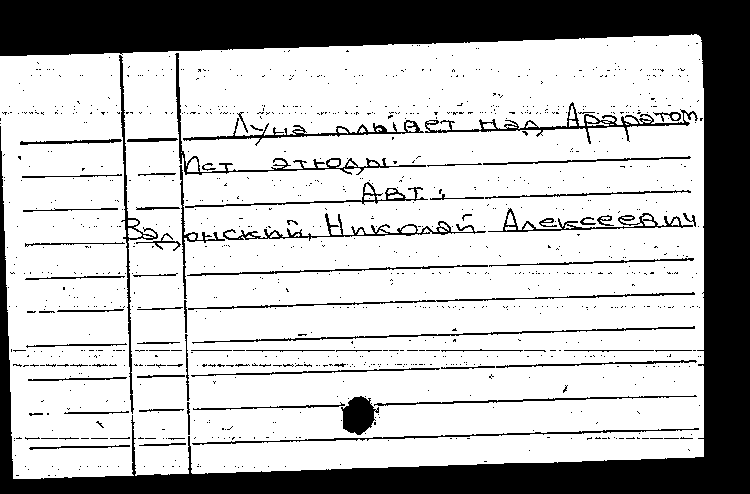 Луна плывет над Араратом.
Ист. этюды.
Авт.:
Задонский, Николай Алексеевич